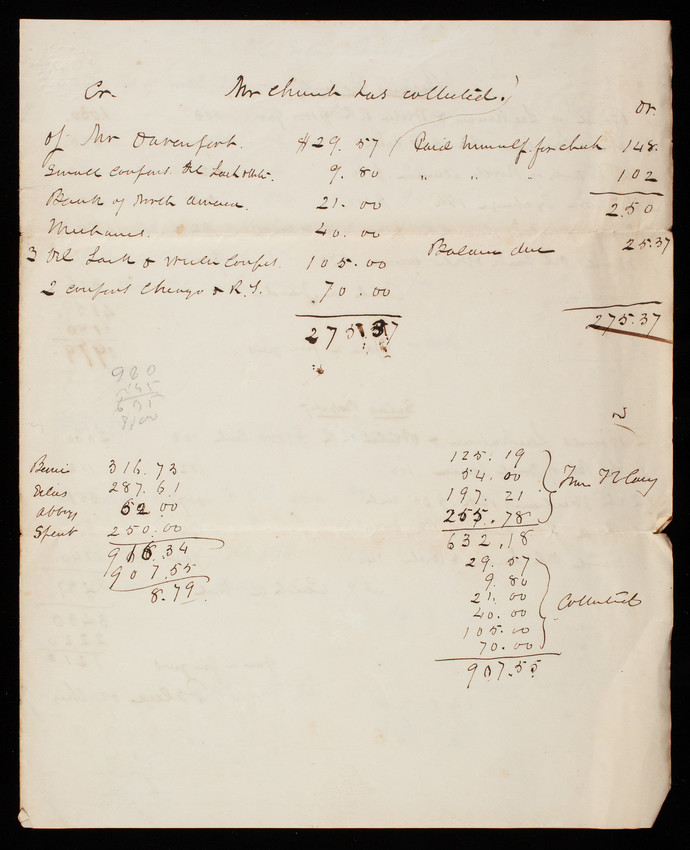 Cr. Mr Church has collected. Dr.
of Mr Davenport. $29.57 Paid himself for check 148.
Small coupons Del Lack & West. 9.80 " " - 102
Bank of North America. 21.00 2.50
Mechanics. 40.00
Balance due 25.37
3 Del Lack & Westn Coupns. 105.00
2 coupons Chicago & R.I. 70.00
275.37 275.37
980
145
8,00
Benie 316.73
Elias 287.61
Abbys 62.00
Spent 250.00
916.34
907.55
8.79
125.19
54.00
197.21
255.78
From
632.18
29.57
9.80
21.00
40.00
105.00
70.00
Collected
907.55